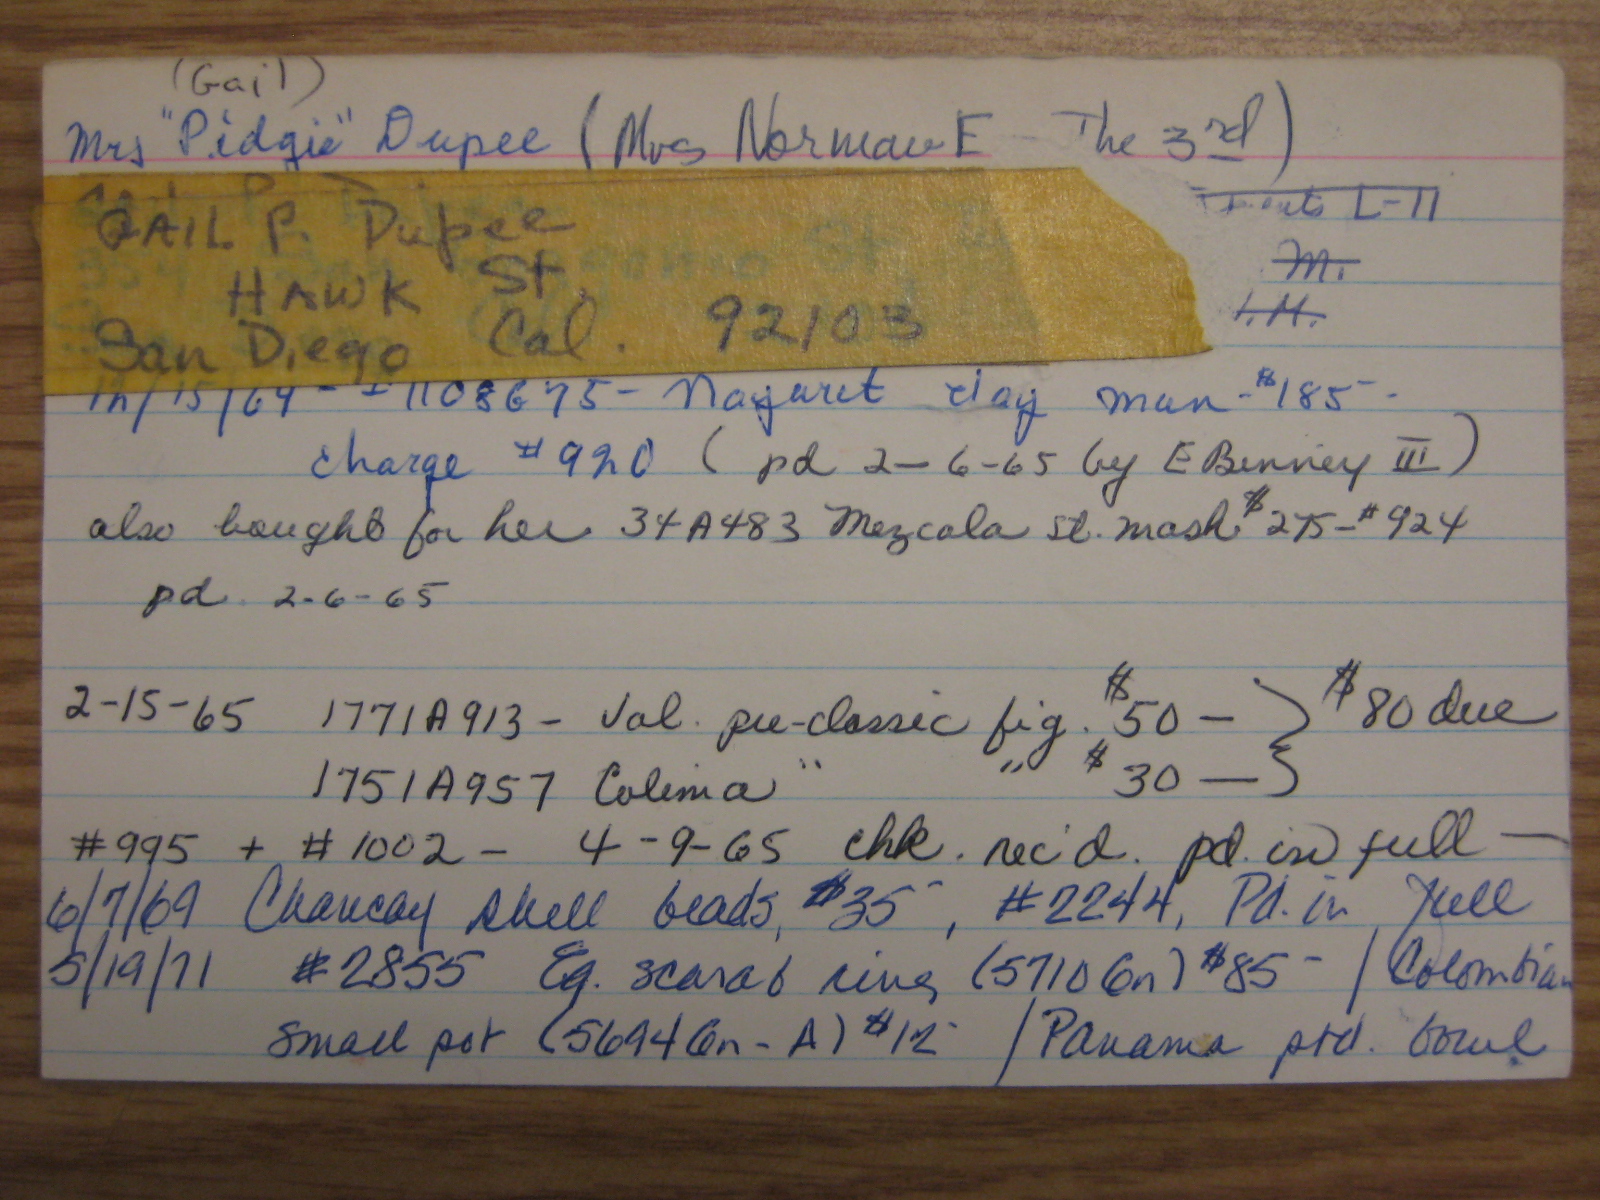 (Gail)
Mrs "Pidgie" Dupee (Mrs Norman E - The 3rd)
L-11
GAIL P. Dupee
M.
HAWK St.
I.M.
San Diego Cal. 92103
12/15/64 - 1108675 - Nayaret clay man - $185 -
charge #920 (pd 2-6-65 by E Binney III)
also bought for her 34A483 Mezcala st. mask $275 - #924
pd. 2-6-65
2-15-65 1771A913 - Val. pre-classic fig. $50 — } $80 due
1751A957 Colima " " $30 — }
#995 + #1002 - 4-9-65 chk. rec'd. pd. in full —
6/7/69 Chancay shell beads, $35-, #2244, Pd. in full
5/19/71 #2855 Eg. scarab ring (5710Gn) $85- / Colombian
small pot (5694Gn-A) $12- / Panama ptd. bowl